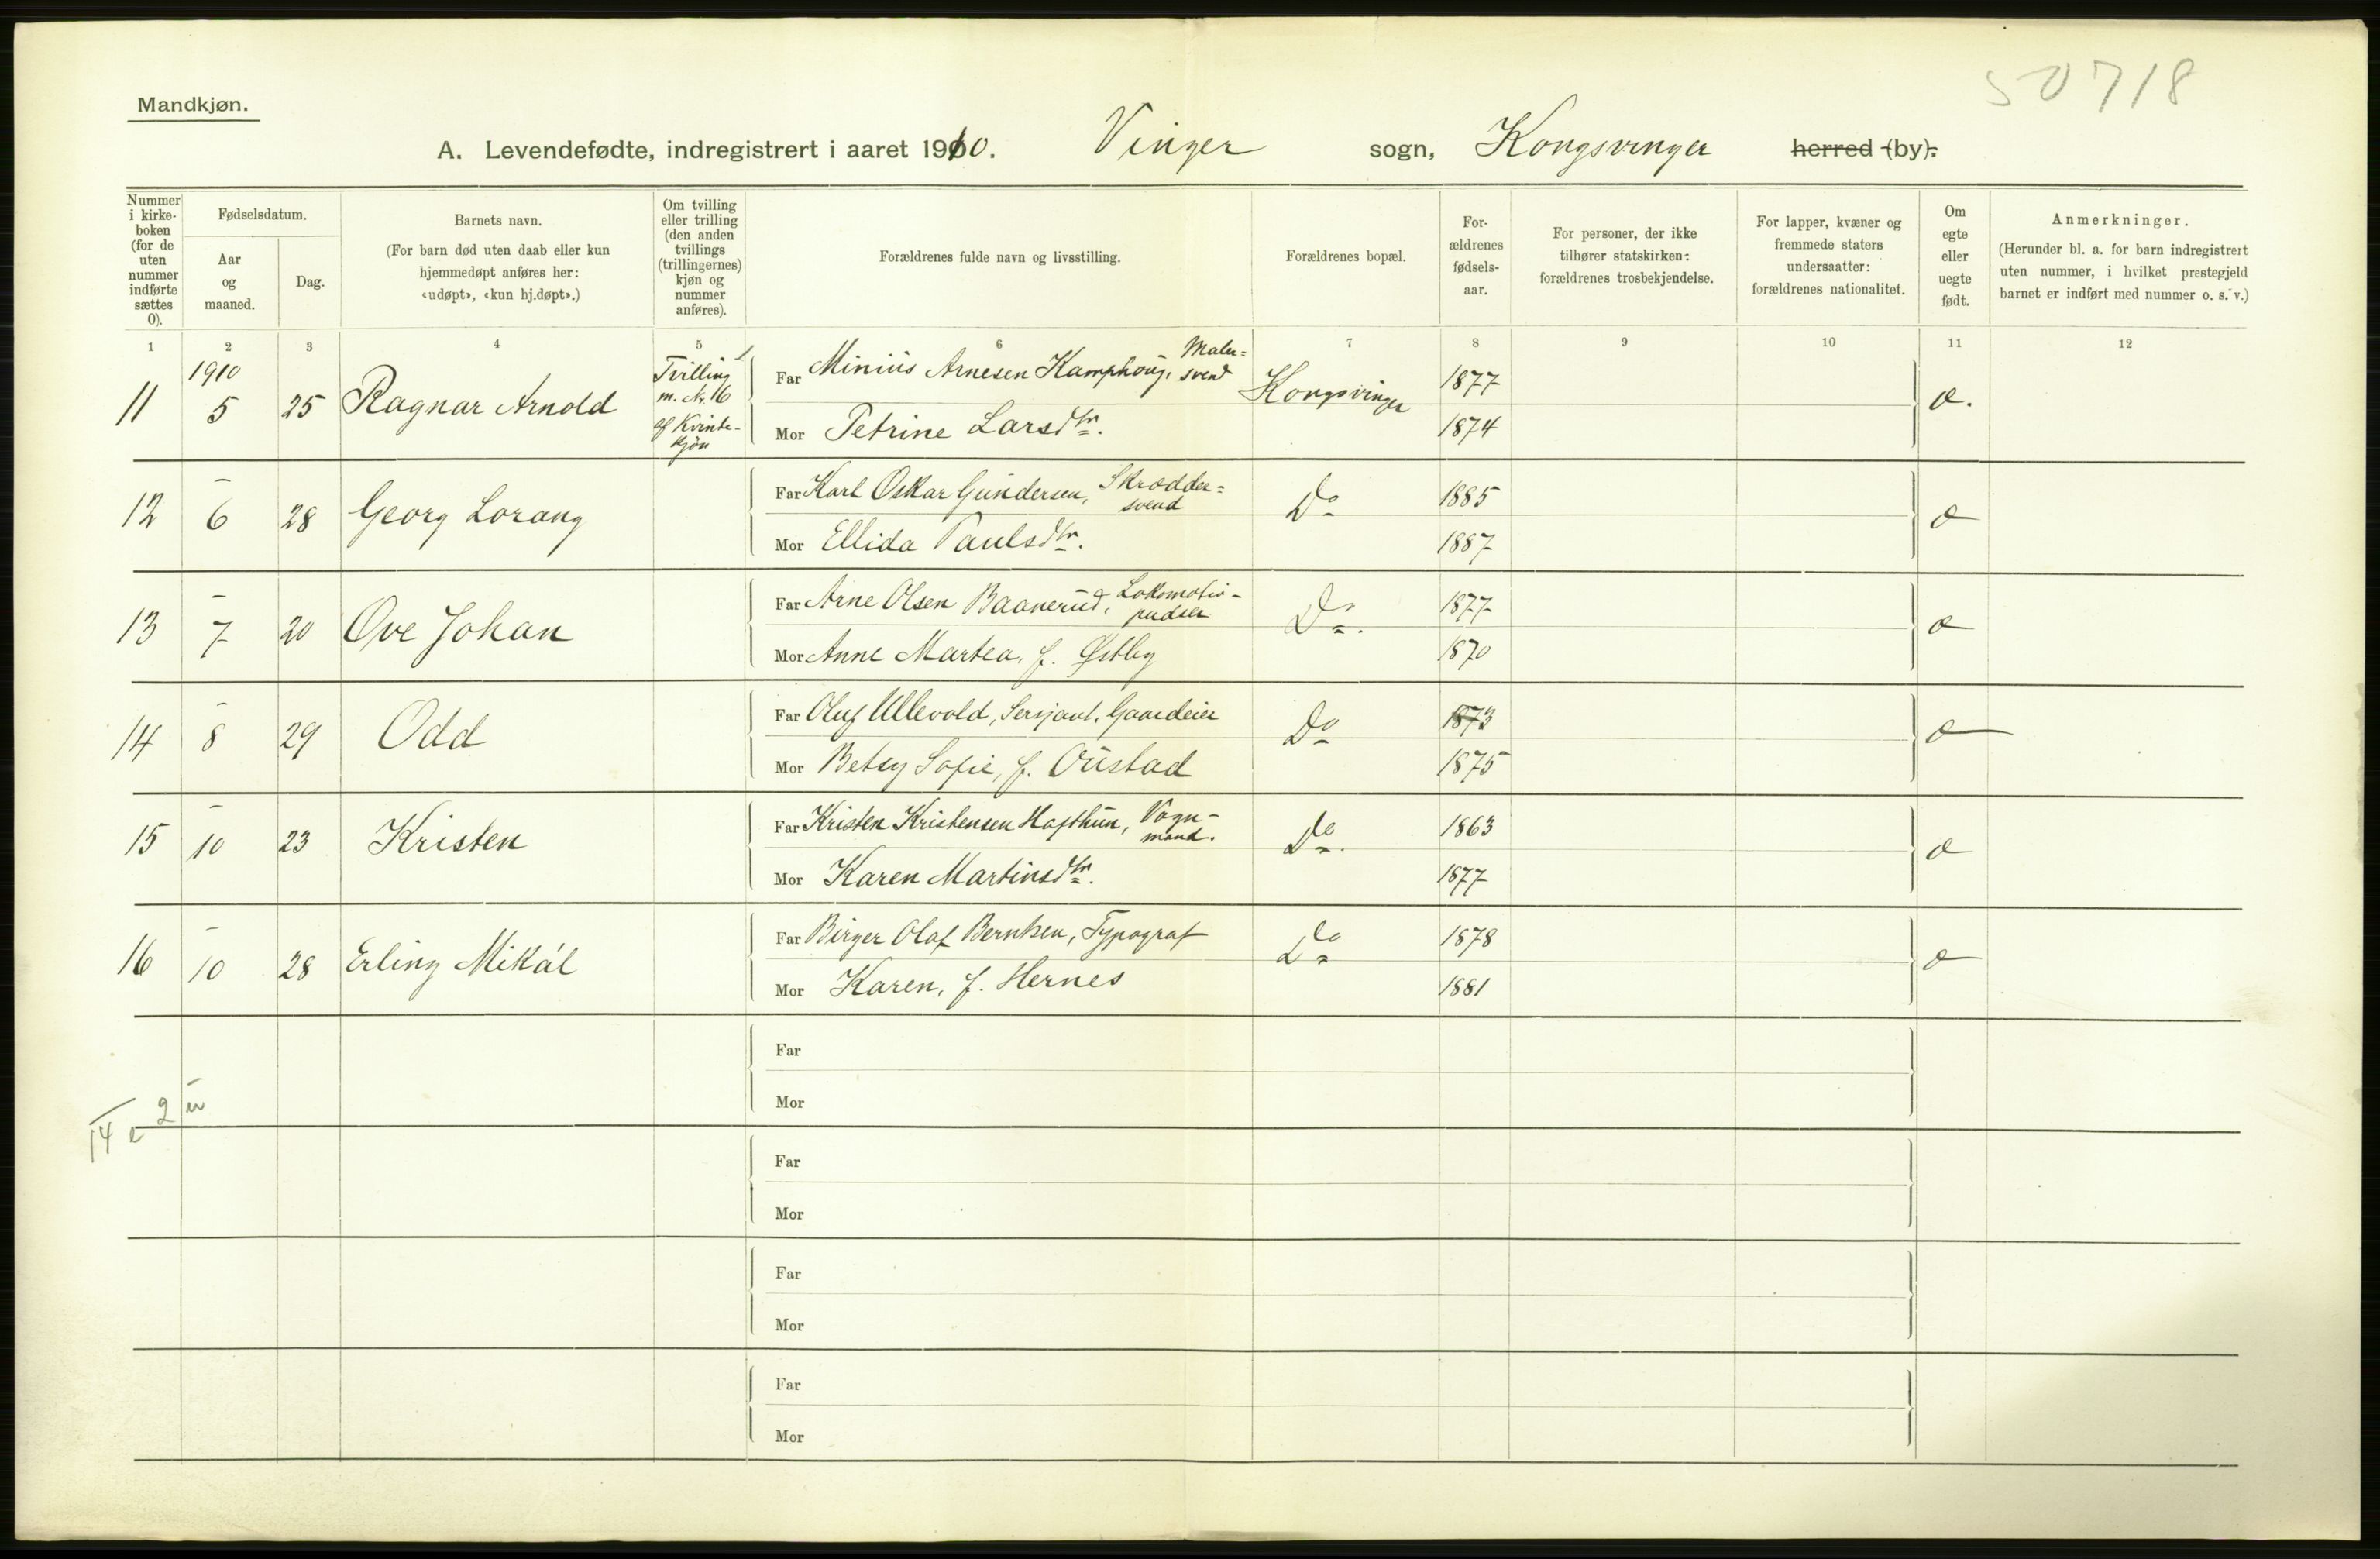 50718
Mandkjøn.
A. Levendefødte, indregistrert i aaret 1910. Vinger sogn, Kongsvinger herred (by).
Nummer i kirke-boken (for de uten nummer indførte sættes 0).
Fødselsdatum.
Aar og maaned.
Dag.
Barnets navn.
(For barn død uten daab eller kun hjemmedøpt anføres her: «udøpt», «kun hj.døpt».)
Om tvilling eller trilling (den anden tvillings (trillingernes) kjøn og nummer anføres).
Forældrenes fulde navn og livsstilling.
Forældrenes bopæl.
For-ældrenes fødsels-aar.
For personer, der ikke tilhører statskirken: forældrenes trosbekjendelse.
For lapper, kvæner og fremmede staters undersaatter: forældrenes nationalitet.
Om egte eller uegte født.
Anmerkninger.
(Herunder bl. a. for barn indregistrert uten nummer, i hvilket prestegjeld barnet er indført med nummer o. s. v.)
1 2 3 4 5 6 7 8 9 10 11 12
11 1910 5 25 Ragnar Arnold Tvilling m. Nr. 16 af Kvinde-kjøn
Far Minius Arnesen Kamphoug, Maler=svend Kongsvinger 1877 e.
Mor Petrine Larsdtr. 1874
12 – 6 28 Georg Lorang
Far Karl Oskar Gundersen, Skrædder=svend Do 1885 e
Mor Ellida Paulsdtr. 1887
13 – 7 20 Ove Johan
Far Arne Olsen Baanerud, Lokomotiv-pudser Do. 1877 e
Mor Anne Martea, f. Østby 1870
14 – 8 29 Odd
Far Oluf Ullevold, Sersjant, Gaardeier Do 1873 e
Mor Betsy Sofie, f. Oustad 1875
15 – 10 23 Kristen
Far Kristen Kristensen Hafthun, Vogn-mand. Do. 1863 e
Mor Karen Martinsdtr. 1877
16 – 10 28 Erling Mikal
Far Birger Olaf Berntsen, Typograf Do 1878 e
Mor Karen, f. Hernes 1881
Far
Mor
14 e 2 u
Far
Mor
Far
Mor
Far
Mor